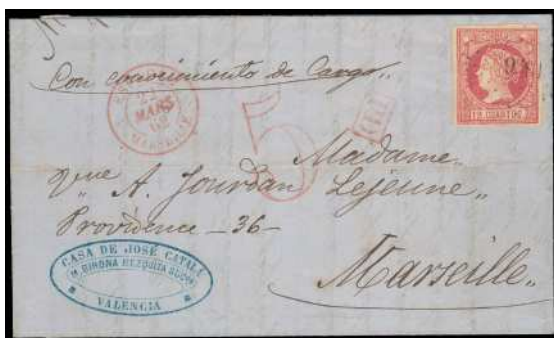 Con conocimiento de Cargo,,
MARS
62
MARSEILLE
5
P.D.
12 CUARTOS
Madame
que A. Jourdan Lejeune,,
Providence - 36 -
Marseille.
CASA DE JOSÉ CATALÁ
VALENCIA